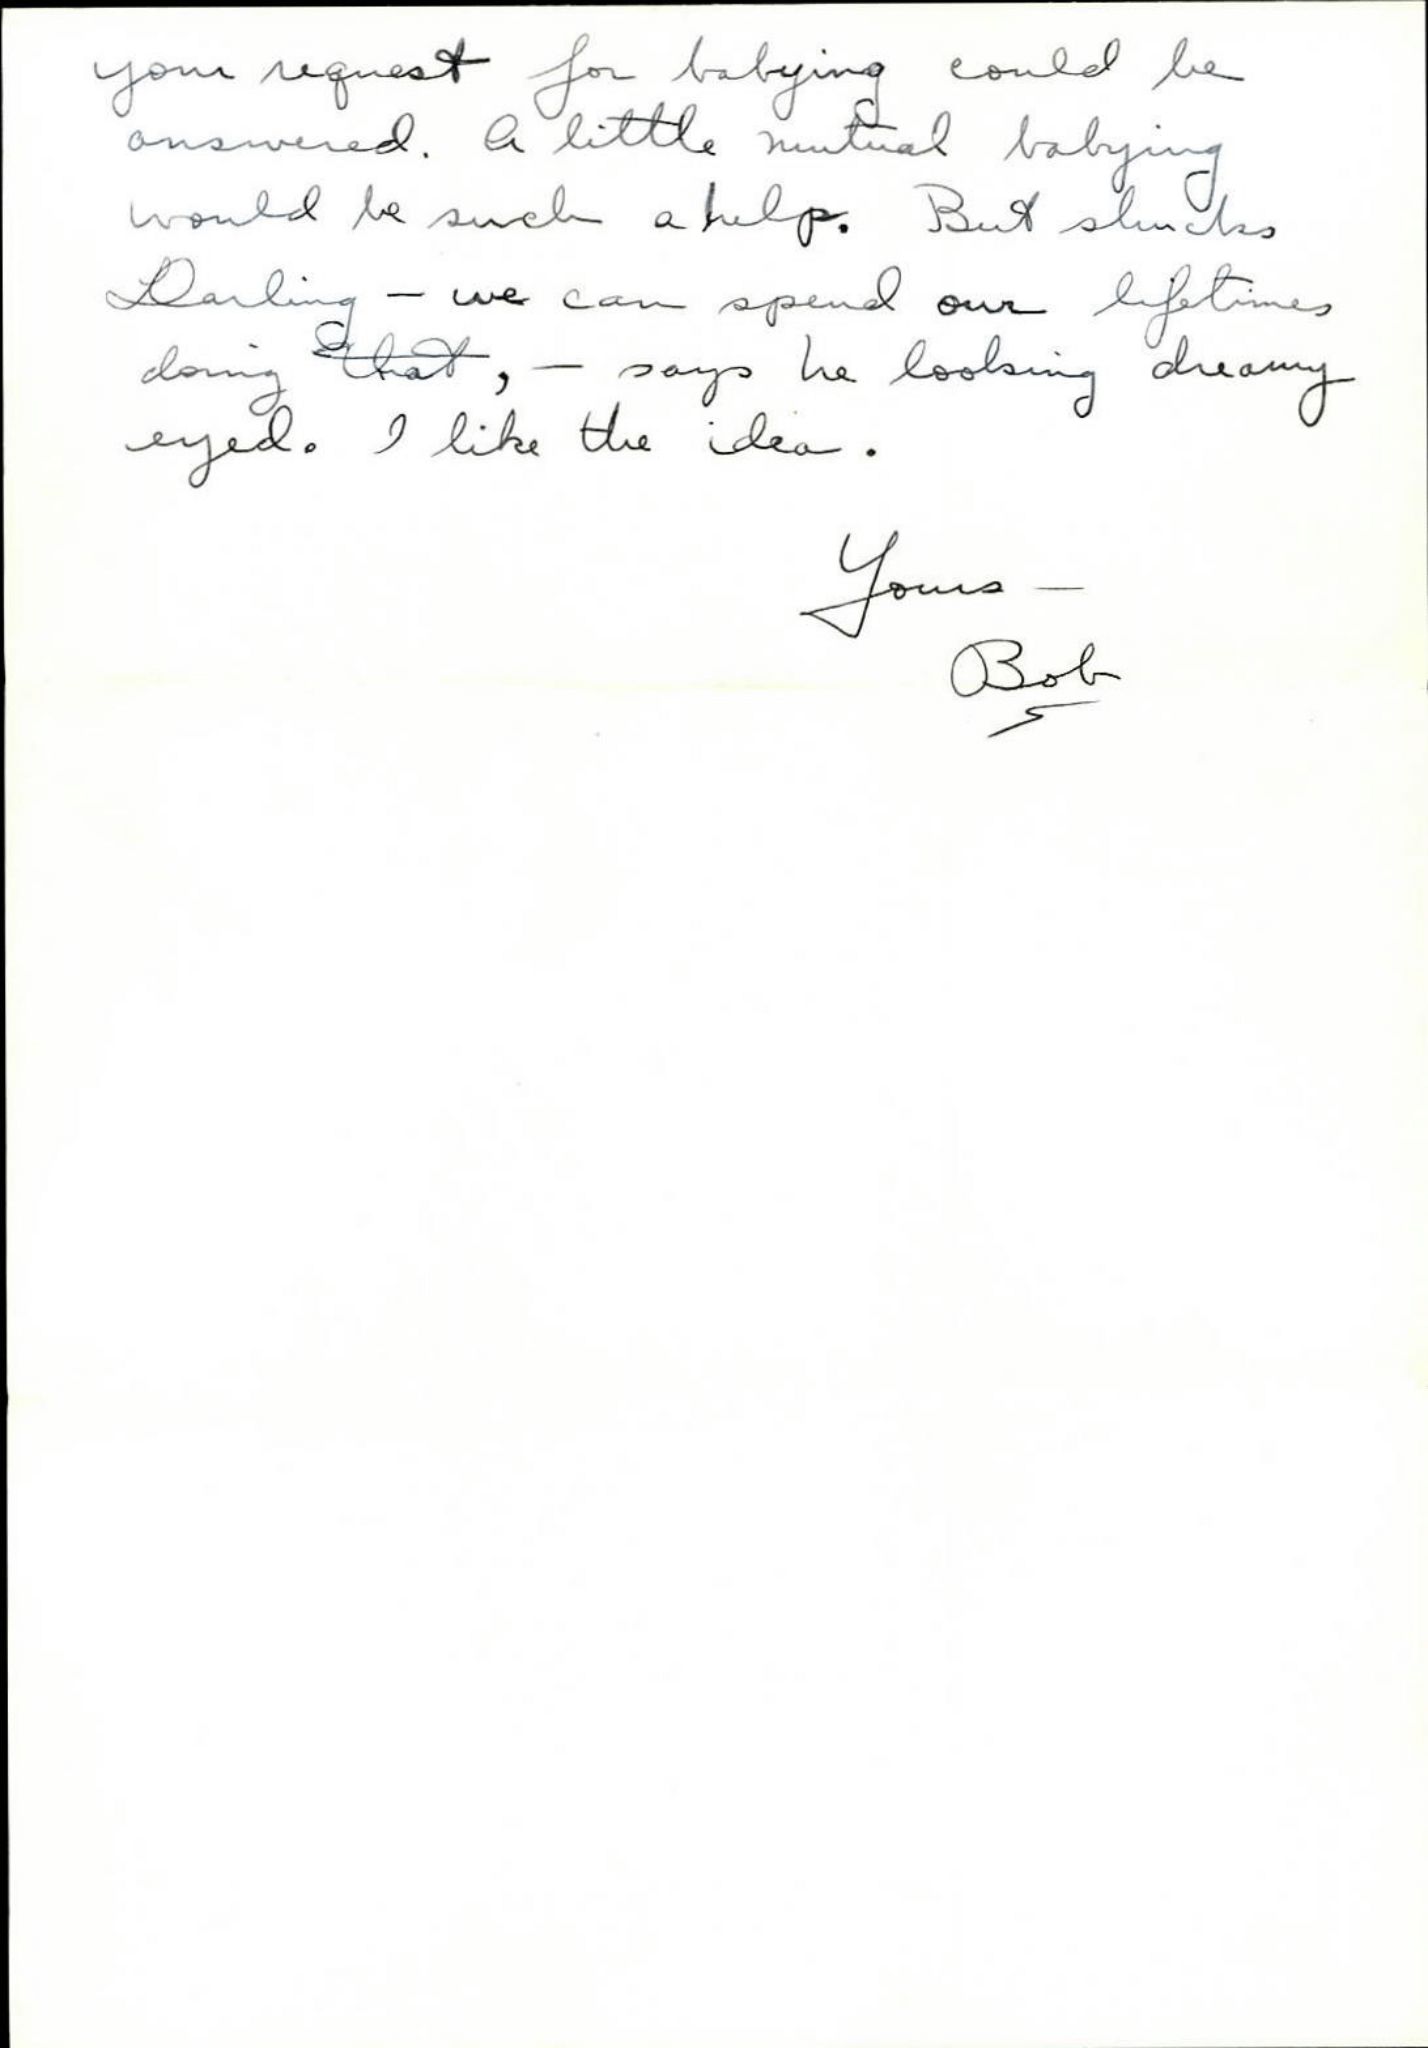 your request for babying could be
answered. A little mutual babying
would be such a help. But shucks
Darling - we can spend our lifetimes
doing that, - says he looking dreamy
eyed. I like the idea.
Yours -
Bob